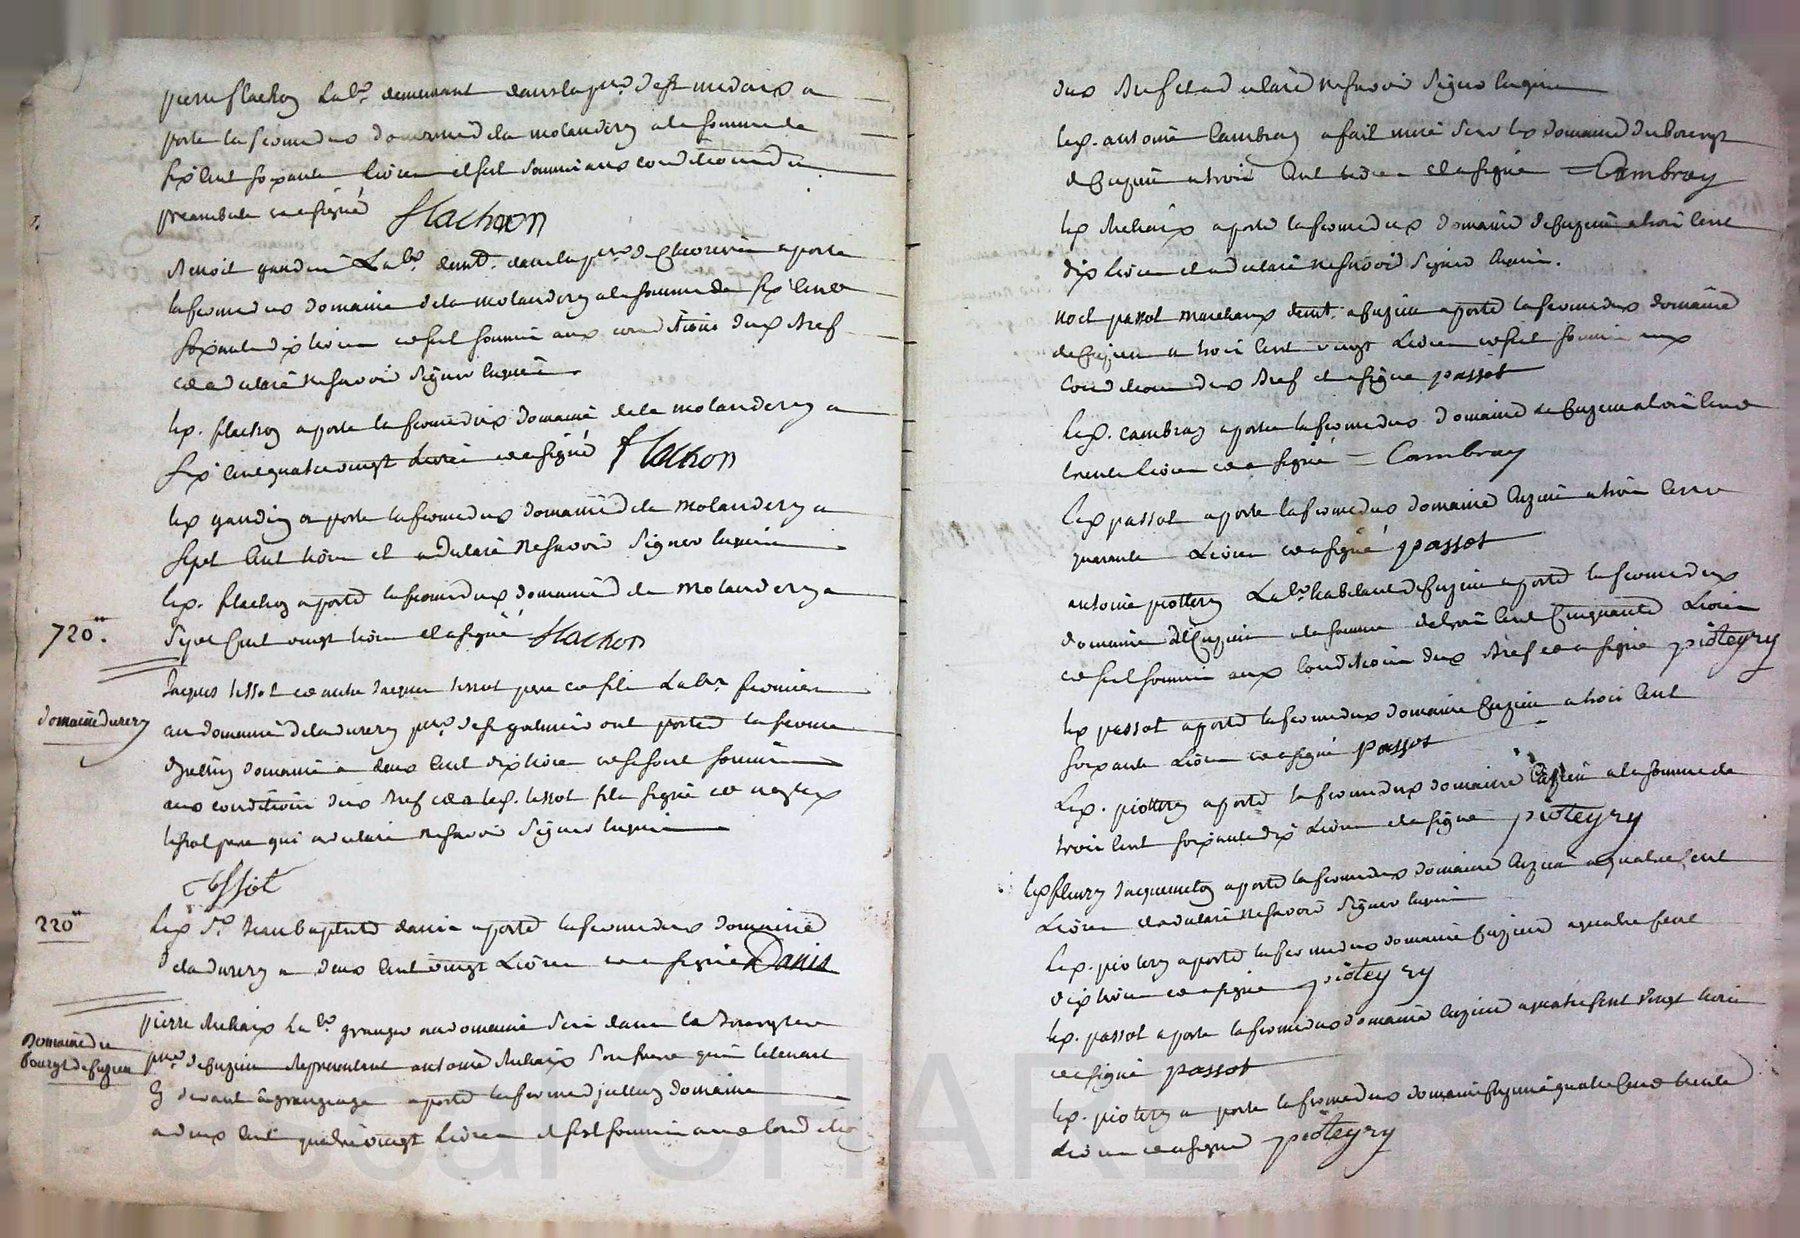 pierre flachon Lab.r demeurant dans la p.sse de st medaix a
porté la ferme dud domaine de la molandery a la somme de
six cent soixante livres et sest soumis aux conditions du
preambule et a signé flachon
Benoit gaudin Lab.r demt. dans la p.sse de Chevrieres a porté
la ferme dud domaine de la molandery a la somme de six cent
soixante dix livres et sest soumis aux conditions dud Bref
et a declaré ne savoir signer enquis
led. flachon a porté la ferme dud domaine de la molandery a
six cent quatre vingt livres et a signé flachon
led gaudin a porté la ferme dud domaine de la molandery a
sept cent livres et a declaré ne savoir signer enquis
led. flachon a porté la ferme dud domaine de la molandery a
720.tt
sept cent vingt livres et a signé flachon
Jacques tissot et autre Jacques tissot pere et fils Lab.rs fermiers
domaine durery
au domaine de la durery p.sse de st galmier ont porté la ferme
dudit domaine a deux cent dix livres et se sont soumis
aux conditions dud Bref et a led. tissot fils signé et non led
tissot pere qui a declaré ne savoir signer enquis
tissot
220.tt
led S.r Jean baptiste danis a porté la ferme dud domaine
de la durery a deux cent vingt Livres et a signé Danis
pierre Relaix Lab.r granger au domaine scis dans le Bourg
Domaine du
bourgt de Cuzieu
p.sse de Cuzieu representant antoine Relaix son frere qui le tenait
cy devant a grangeage a porté la ferme dudit domaine
a deux cent quatre vingt Livres et sest soumis aux conditions
dud Bref et a declaré ne savoir signer enquis
led. antoine Cambray a fait mise sur led domaine du bourgt
de Cuzieu a trois cent livres et a signé Cambray
led Relaix a porté la ferme dud domaine de Cuzieu a trois cent
dix Livres et a declaré ne savoir signer enquis.
noel passot marchand demt. a Cuzieu a porté la ferme dud domaine
de Cuzieu a trois cent vingt Livres et sest soumis aux
conditions dud Bref et a signé passot
led. cambray a porté la ferme dud domaine de Cuzieu a trois cent
trente Livres et a signé Cambray
led passot a porté la ferme dud domaine Cuzieu a trois cent
quarante Livres et a signé passot
antoine piottery Lab.r habitant de Cuzieu a porté la ferme dud
domaine de Cuzieu a la somme de trois cent Cinquante Livres
et sest soumis aux Conditions dud Bref et a signé pioteyry
led passot a porté la ferme dud domaine Cuzieu a trois cent
soixante Livres et a signé passot
led. piottery a porté la ferme dud domaine Cuzieu a la somme de
trois cent soixante dix Livres et a signé pioteyry
led fleury Jacquemeton a porté la ferme dud domaine Cuzieu a quatre cent
Livres et a declaré ne savoir signer enquis
led. piotery a porté la ferme dud domaine Cuzieu a quatre cent
dix livres et a signé pioteyry
led. passot a porté la ferme dud domaine Cuzieu a quatre cent vingt livres
et a signé passot
led. piotery a porté la ferme dud domaine Cuzieu a quatre cent trente
Livres et a signé pioteyry